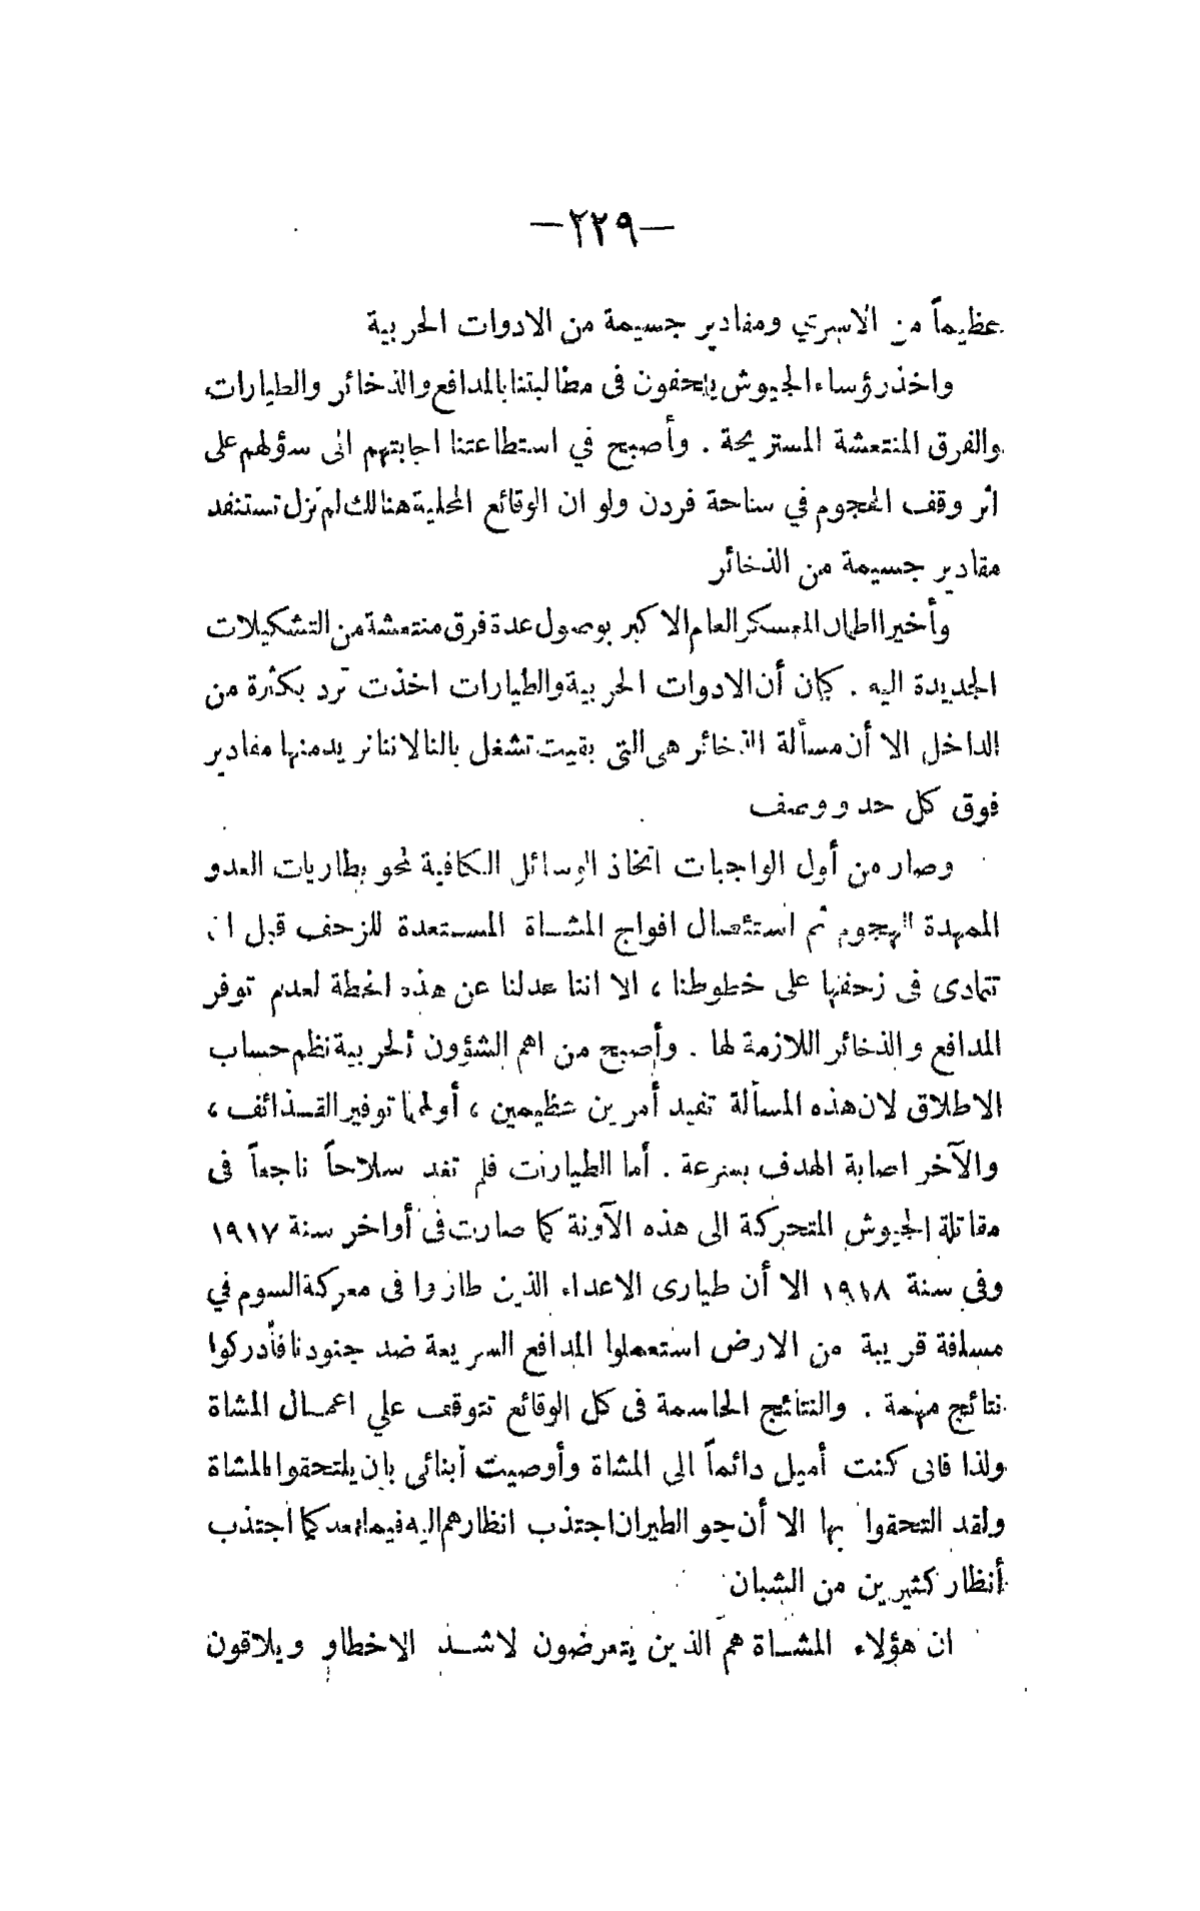 —٢٢٩—
عظيماً من الاسرى ومقادير جسيمة من الادوات الحربية
واخذ رؤساء الجيوش يلحفون فى مطالبتنا بالمدافع والذخائر والطيارات
والفرق المنتعشة المستريحة . وأصبح في استطاعتنا اجابتهم الى سؤلهم على
اثر وقف الهجوم في ساحة فردن ولو ان الوقائع المحلية هنالك لم تزل تستنفد
مقادير جسيمة من الذخائر
وأخيرا اطمأن المعسكر العام الاكبر بوصول عدة فرق منتعشة من التشكيلات
الجديدة اليه . كما أن الادوات الحربية والطيارات اخذت ترد بكثرة من
الداخل الا أن مسألة الذخائر هى التى بقيت تشغل بالنا لاننا نريد منها مقادير
فوق كل حد ووصف
وصار من أول الواجبات اتخاذ الوسائل الكافية لمحو بطاريات العدو
الممهدة للهجوم ثم استئصال افواج المشاة المستعدة للزحف قبل ان
تتمادى فى زحفها على خطوطنا ، الا اننا عدلنا عن هذه الخطة لعدم توفر
المدافع والذخائر اللازمة لها . وأصبح من اهم الشؤون الحربية نظم حساب
الاطلاق لان هذه المسألة تفيد أمرين عظيمين ، أولهما توفير القذائف ،
والآخر اصابة الهدف بسرعة . أما الطيارات فلم تفد سلاحاً ناجعاً فى
مقاتلة الجيوش المتحركة الى هذه الآونة كما صارت فى أواخر سنة ١٩١٧
وفى سنة ١٩١٨ الا أن طيارى الاعداء الذين طاروا فى معركة السوم في
مسافة قريبة من الارض استعملوا المدافع السريعة ضد جنودنا فأدركوا
نتائج مهمة . والنتائج الحاسمة فى كل الوقائع تتوقف علي اعمال المشاة
ولذا فانى كنت أميل دائماً الى المشاة وأوصيت أبنائى بان يلتحقوا بالمشاة
ولقد التحقوا بها الا أن جو الطيران اجتذب انظارهم اليه فيما بعد كما اجتذب
أنظار كثيرين من الشبان
ان هؤلاء المشاة هم الذين يتعرضون لاشد الاخطار ويلاقون